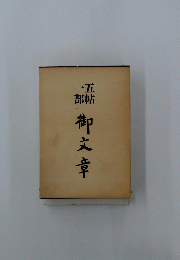 五帖一部
御文章